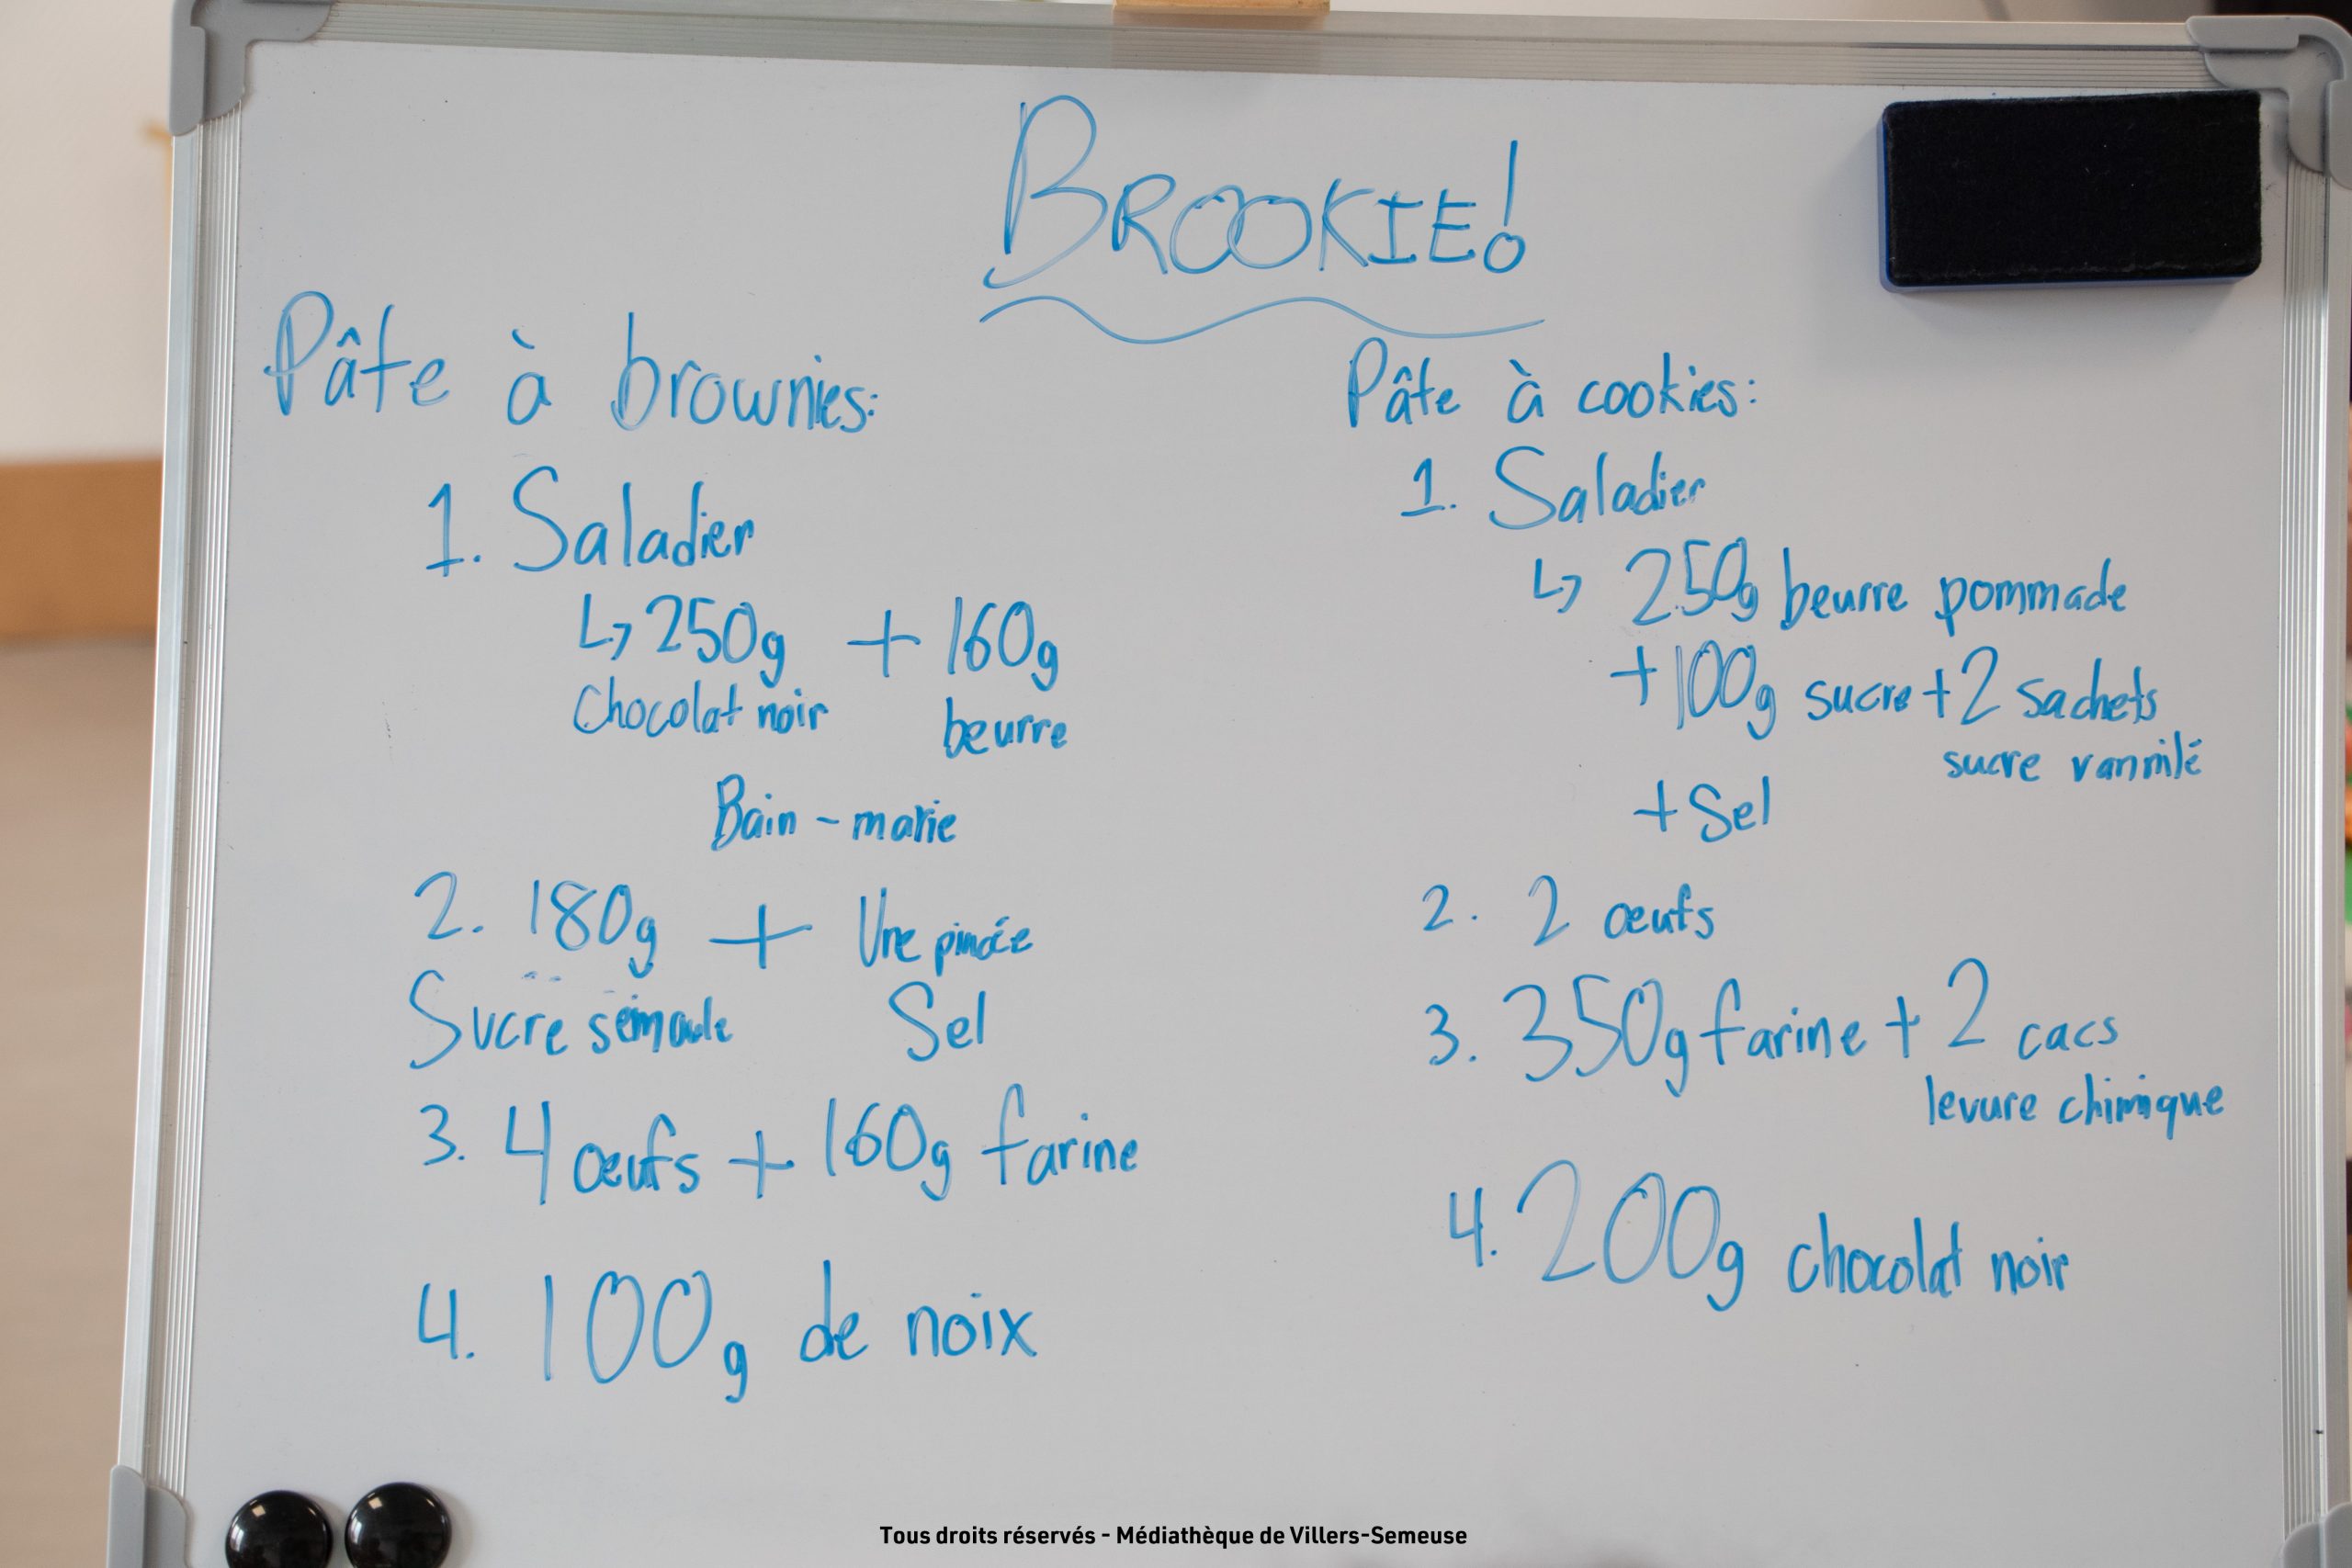 BROOKIE!
Pâte à brownies:
1. Saladier
↳ 250g + 160g
Chocolat noir beurre
Bain-marie
2. 180g + Une pincée
Sucre semoule Sel
3. 4 œufs + 160g farine
4. 100g de noix
Pâte à cookies:
1. Saladier
↳ 250g beurre pommade
+ 100g sucre + 2 sachets
sucre vannilé
+ Sel
2. 2 œufs
3. 350g farine + 2 cacs
levure chimique
4. 200g chocolat noir
Tous droits réservés - Médiathèque de Villers-Semeuse